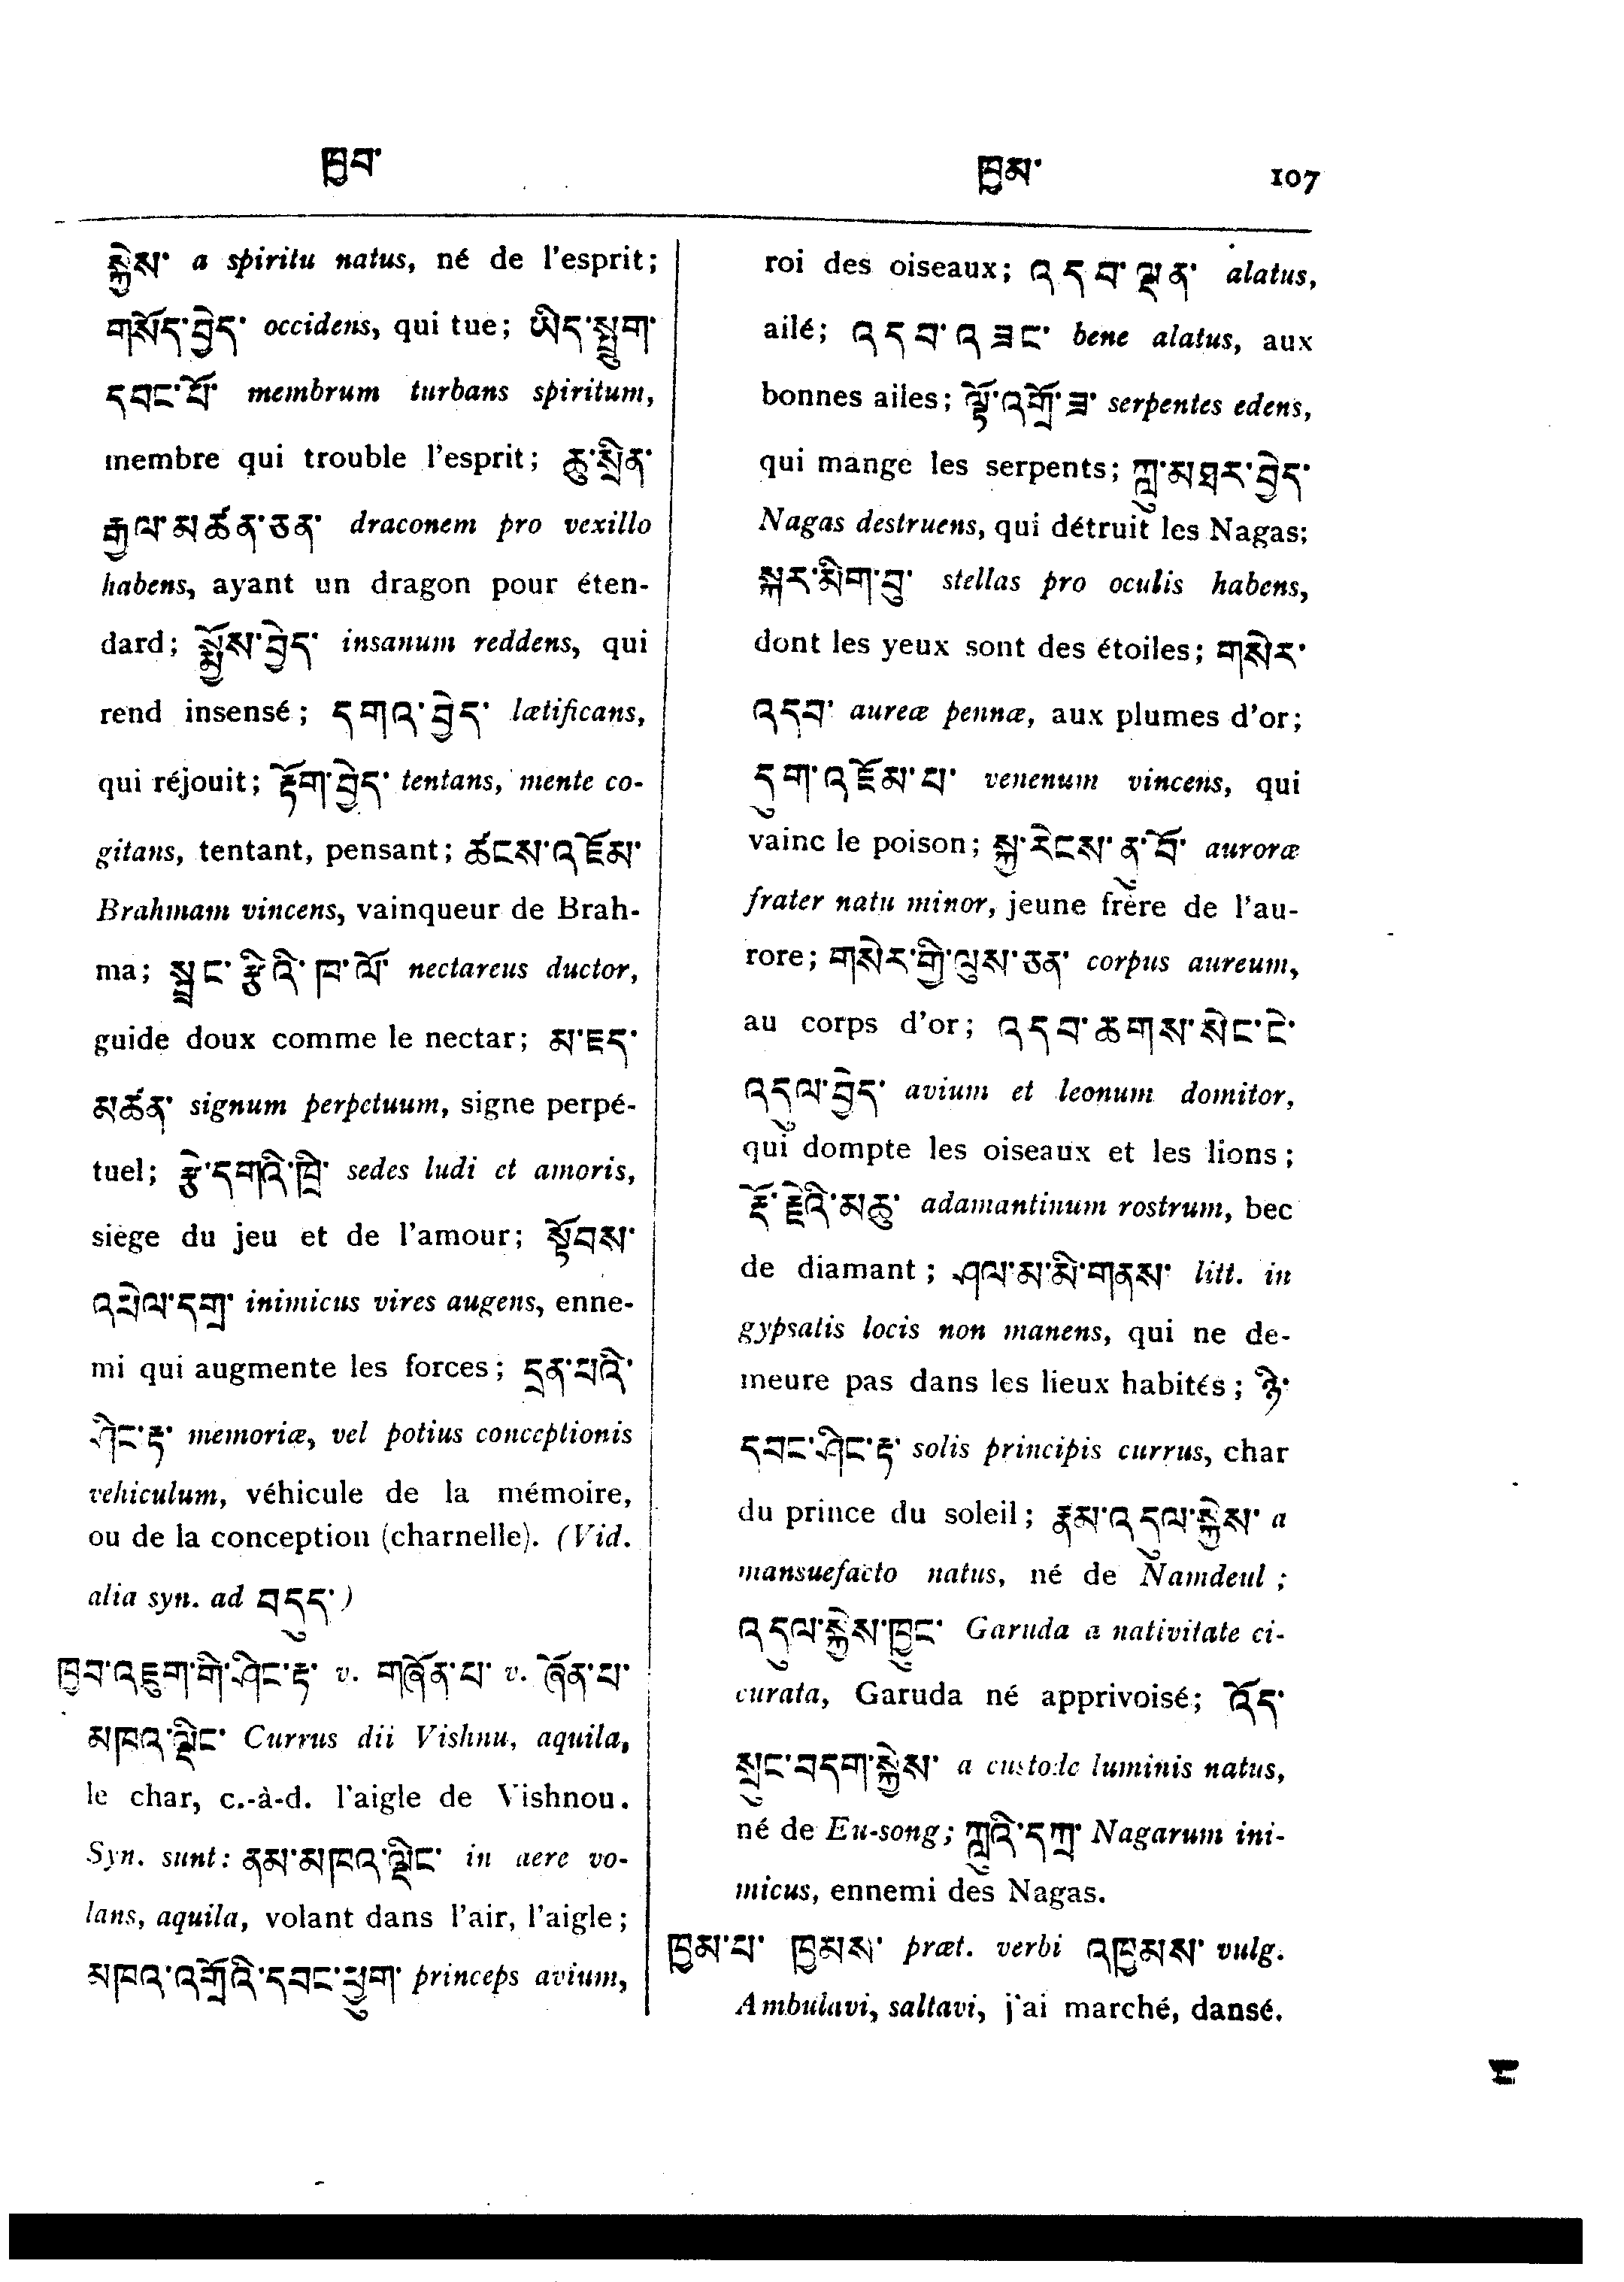 ཁྱབ་
ཁྱམ་ 107
སྐྱེས་ a spiritu natus, né de l'esprit;
གསོད་བྱེད་ occidens, qui tue; ཡིད་སྤྲུག་
དབང་པོ་ membrum turbans spiritum,
membre qui trouble l'esprit; ཆུ་སྲིན་
རྒྱལ་མཚན་ཅན་ draconem pro vexillo
habens, ayant un dragon pour éten-
dard; སྨྱོས་བྱེད་ insanum reddens, qui
rend insensé; དགའ་བྱེད་ lætificans,
qui réjouit; རྟོག་བྱེད་ tentans, mente co-
gitans, tentant, pensant; ཚངས་འཇོམ་
Brahmam vincens, vainqueur de Brah-
ma; སྦྲང་རྩིའི་ཁ་ལོ་ nectareus ductor,
guide doux comme le nectar; མ་ཟད་
མཚན་ signum perpetuum, signe perpé-
tuel; རྩེ་དགའི་ཁྲི་ sedes ludi et amoris,
siège du jeu et de l'amour; སྟོབས་
འཕེལ་དགྲ་ inimicus vires augens, enne-
mi qui augmente les forces; དྲན་པའི་
ཤིང་རྟ་ memoriæ, vel potius conceptionis
vehiculum, véhicule de la mémoire,
ou de la conception (charnelle). (Vid.
alia syn. ad བདུད་)
ཁྱབ་འཇུག་གི་ཤིང་རྟ་ v. གཞོན་པ་ v. ཞོན་པ་
མཁའ་ལྡིང་ Currus dii Vishnu, aquila,
le char, c.-à-d. l'aigle de Vishnou.
Syn. sunt: ནམ་མཁའ་ལྡིང་ in aere vo-
lans, aquila, volant dans l'air, l'aigle;
མཁའ་འགྲོའི་དབང་ཕྱུག་ princeps avium,
roi des oiseaux; འདབ་ལྡན་ alatus,
ailé; འདབ་འཟང་ bene alatus, aux
bonnes ailes; ལྟོ་འགྲོ་ཟ་ serpentes edens,
qui mange les serpents; ཀླུ་མཐར་བྱེད་
Nagas destruens, qui détruit les Nagas;
སྐར་མིག་བུ་ stellas pro oculis habens,
dont les yeux sont des étoiles; གསེར་
འདབ་ aureæ pennæ, aux plumes d'or;
དུག་འཇོམ་པ་ venenum vincens, qui
vainc le poison; སྐྱ་རེངས་ནུ་བོ་ auroræ
frater natu minor, jeune frère de l'au-
rore; གསེར་གྱི་ལུས་ཅན་ corpus aureum,
au corps d'or; འདབ་ཆགས་སེང་ངེ་
འདུལ་བྱེད་ avium et leonum domitor,
qui dompte les oiseaux et les lions;
རྡོ་རྗེའི་མཆུ་ adamantinum rostrum, bec
de diamant; ཤལ་མ་མི་གནས་ litt. in
gypsatis locis non manens, qui ne de-
meure pas dans les lieux habités; ཉི་
དབང་ཤིང་རྟ་ solis principis currus, char
du prince du soleil; རྣམ་འདུལ་སྐྱེས་ a
mansuefacto natus, né de Namdeul;
འདུལ་སྐྱེས་ཁྱུང་ Garuda a nativitate ci-
curata, Garuda né apprivoisé; འོད་
སྲུང་བདག་སྐྱེས་ a custode luminis natus,
né de Eu-song; ཀླུའི་དཀྲ་ Nagarum ini-
micus, ennemi des Nagas.
ཁྱམ་པ་ ཁྱམས་ præt. verbi འཁྱམས་ vulg.
Ambulavi, saltavi, j'ai marché, dansé.